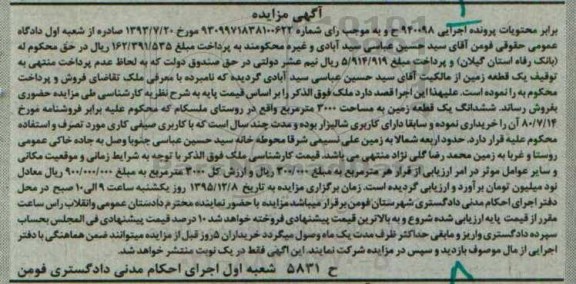 آگهی مزایده
برابر محتویات پرونده اجرایی ۹۴۰۰۹۸ ح و به موجب رای شماره ۹۳۰۹۹۷۱۸۳۸۱۰۰۶۲۲ مورخ ۱۳۹۳/۷/۲۰ صادره از شعبه اول دادگاه
عمومی حقوقی فومن آقای سید حسین عباسی سید آبادی و غیره محکومند به پرداخت مبلغ ۱۶۲/۳۹۱/۵۳۵ ریال در حق محکوم له
(بانک رفاه استان گیلان) و پرداخت مبلغ ۵/۹۱۴/۹۱۹ ریال نیم عشر دولتی در حق صندوق دولت که به لحاظ عدم پرداخت منتهی به
توقیف یک قطعه زمین از مالکیت آقای سید حسین عباسی سید آبادی گردیده که نامبرده با معرفی ملک تقاضای فروش و پرداخت
محکوم به را نموده است. علیهذا این اجرا قصد دارد ملک فوق الذکر را بر اساس قیمت پایه به شرح نظریه کارشناسی طی مزایده حضوری
بفروش رساند. ششدانگ یک قطعه زمین به مساحت ۳۰۰۰ مترمربع واقع در روستای ملسکام که محکوم علیه برابر فروشنامه مورخ
۸۰/۷/۱۴ آن را خریداری نموده و سابقا دارای کاربری شالیزار بوده و مدت چند سال است که با کاربری صیفی کاری مورد تصرف و استفاده
محکوم علیه قرار دارد. حدود اربعه شمالا به زمین علی نسیمی شرقا محوطه خانه سید حسین عباسی جنوبا وصل به جاده خاکی عمومی
روستا و غربا به زمین محمد رضا گلی نژاد منتهی می باشد. قیمت کارشناسی ملک فوق الذکر با توجه به شرایط زمانی و موقعیت مکانی
و سایر عوامل موثر در امر ارزیابی از قرار هر مترمربع به مبلغ ۳۰۰/۰۰۰ ریال و ارزش کل ۳۰۰۰ مترمربع به مبلغ ۹۰۰/۰۰۰/۰۰۰ ریال معادل
نود میلیون تومان برآورد و ارزیابی گردیده است. زمان برگزاری مزایده به تاریخ ۱۳۹۵/۱۲/۸ روز یکشنبه ساعت ۹ الی ۱۰ صبح در محل
دفتر اجرای احکام مدنی دادگستری شهرستان فومن برقرار میباشد مزایده با حضور نماینده محترم دادستان عمومی وانقلاب راس ساعت
مقرر از قیمت پایه ارزیابی شده شروع و به بالاترین قیمت پیشنهادی فروخته خواهد شد ۱۰ درصد قیمت پیشنهادی فی المجلس بحساب
سپرده دادگستری واریز و مابقی حداکثر ظرف مدت یک ماه وصول میگردد خریداران ۵ روز قبل از مزایده میتوانند ضمن هماهنگی با دفتر
اجرایی از مال موصوف بازدید و سپس در مزایده شرکت نمایند. این آگهی فقط در یک نوبت منتشر خواهد شد.
ح ۵۸۳۱ شعبه اول اجرای احکام مدنی دادگستری فومن